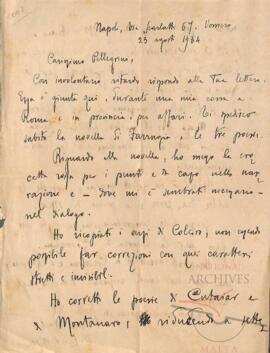 Napoli, Via Scarlatti 67. Vomero
23 agosto 1934
Carissimo Pellegrino,
Con involontario ritardo rispondo alla Tua lettera.
Essa è giunta qui, durante una mia corsa a
Roma e in provincia, per affari. Ti spedisco
subito la novella di Farrugia e le tre poesie.
Riguardo alla novella, ho messo la cro
cetta rossa per i punti e da capo nella nar
razione e - dove mi è sembrato necessario -
nel dialogo.
Ho ricopiati i versi di Coleiro, non essendo
possibile far correzioni con quei caratteri
stretti e invisibili.
Ho corretto le poesie di Cutajar e
di Montanaro, riducendo a
NATIONAL
ARCHIVES
MALTA